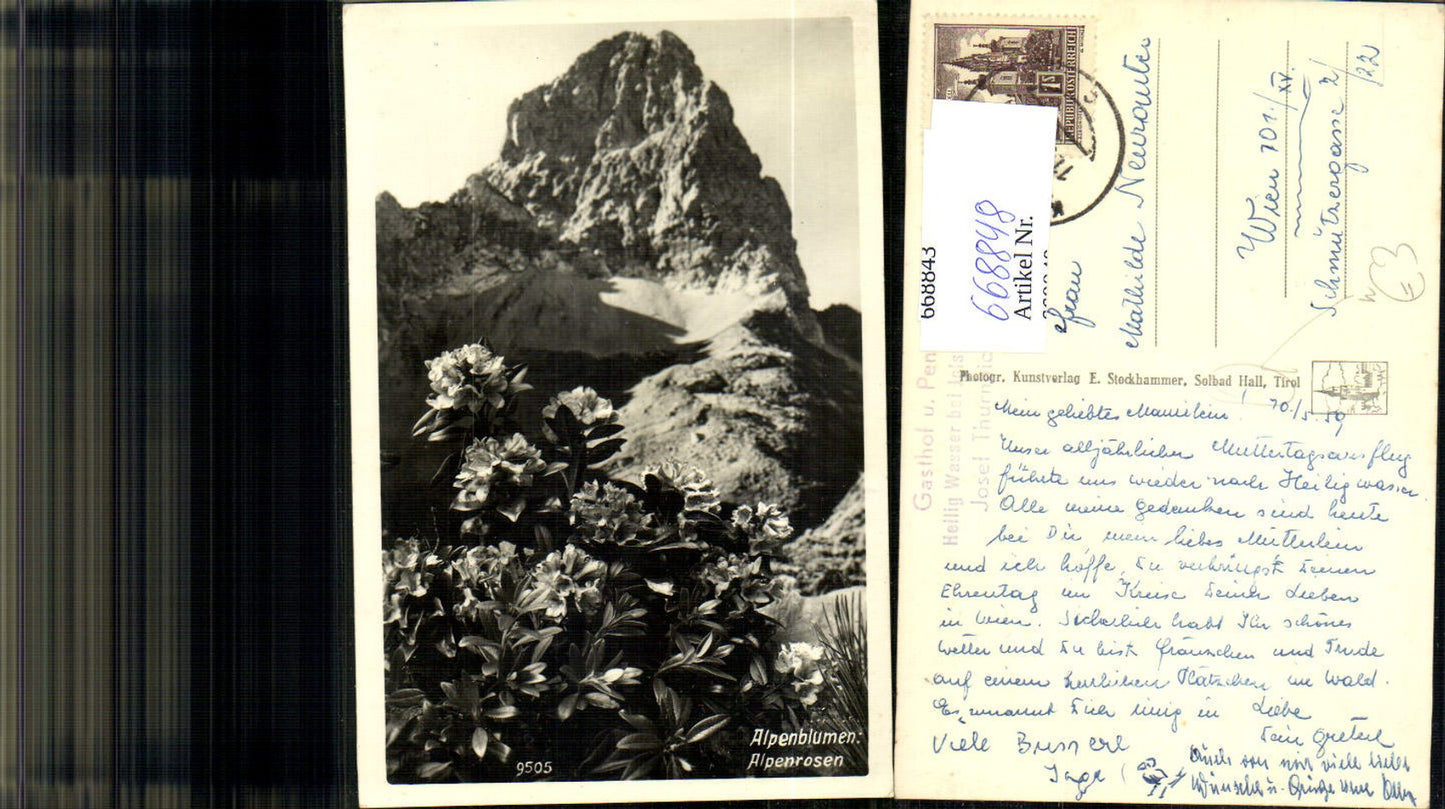 Alpenblumen:
Alpenrosen
9505
REPUBLIK ÖSTERREICH
668843
668848
Artikel Nr.
Frau
Mathilde Neurauter
Wien 101/XV.
Schmutzergasse 2/
/22
€3
Gasthof u. Pen
Heilig Wasser bei
Josef Thurn
Photogr. Kunstverlag E. Stockhammer, Solbad Hall, Tirol
Mein geliebtes Mamilein! 10./5.59
Unser alljährlicher Muttertagsausflug
führte uns wieder nach Heiligwasser.
Alle meine Gedanken sind heute
bei Dir mein liebes Mütterlein
und ich hoffe, Du verbringst Deinen
Ehrentag im Kreise Deiner Lieben
in Wien. Sicherlich habt Ihr schönes
Wetter und Du bist Grauschen und Trude
auf einem herrlichen Plätzchen im Wald.
Es umarmt Dich innig in Liebe
Dein Greterl
Viele Busserl
Inge
Auch von mir viele liebe
Wünsche u. Grüße